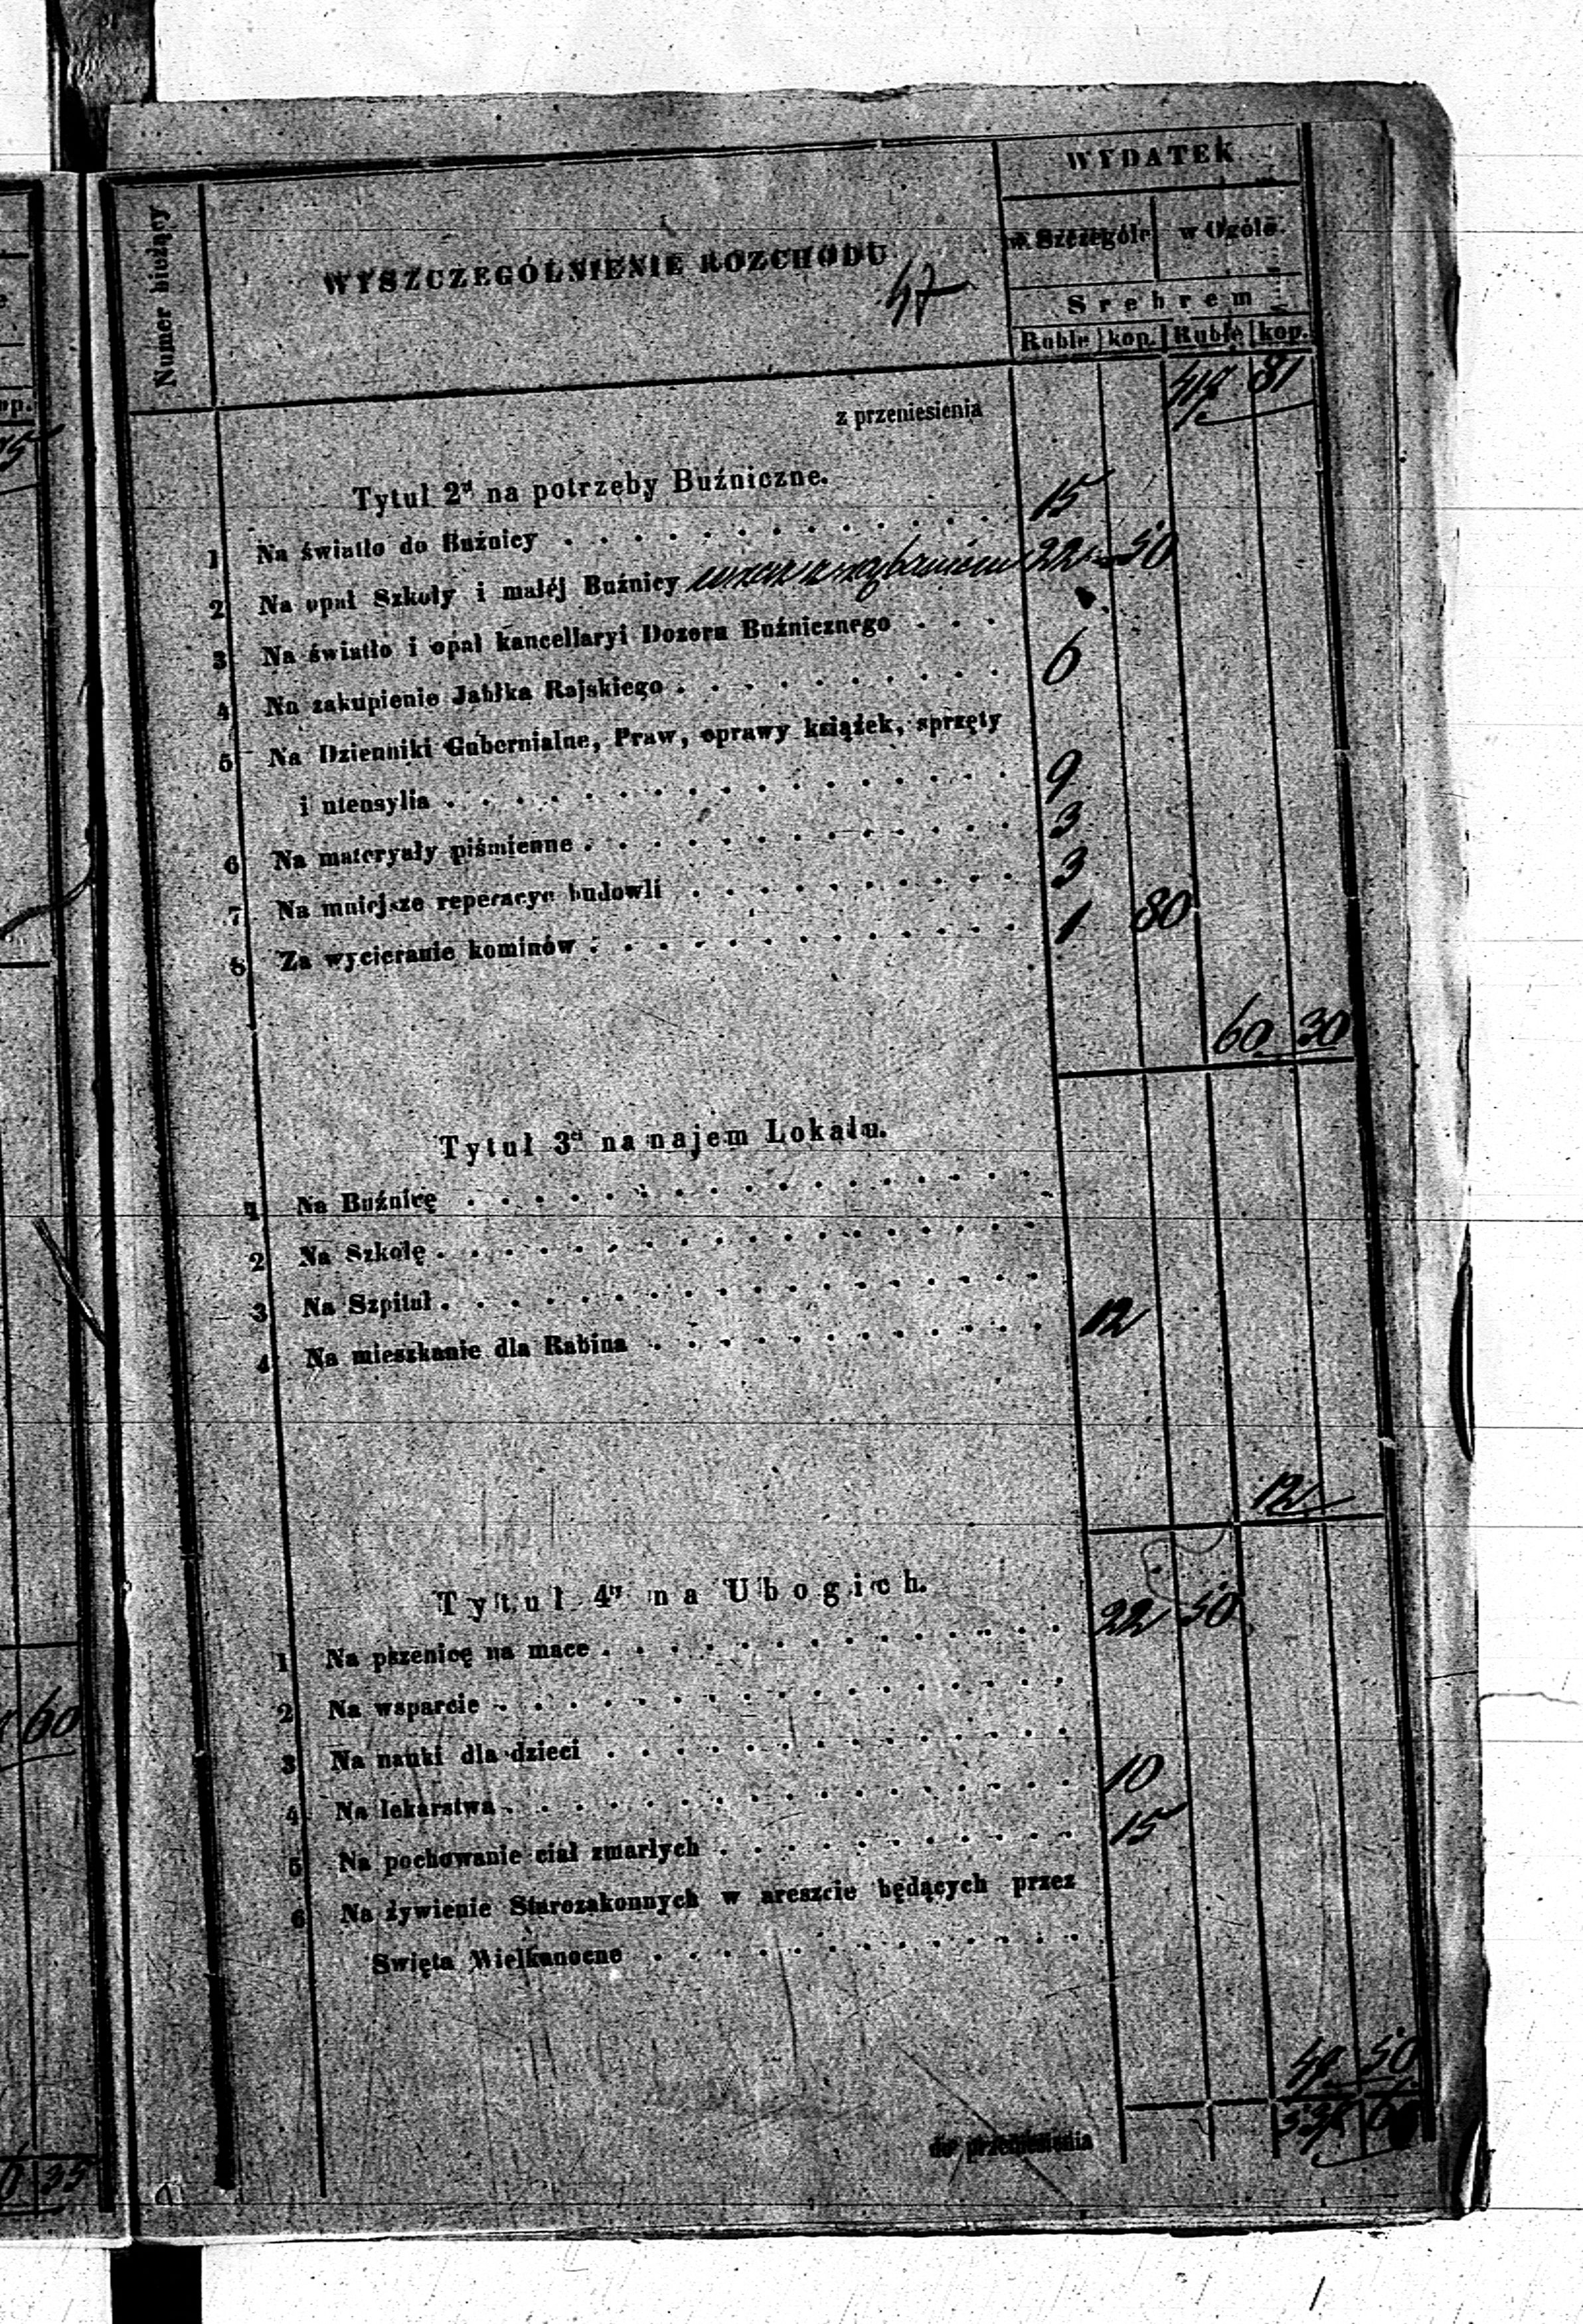 WYDATEK
Numer bieżący
WYSZCZEGÓLNIENIE ROZCHODU
w Szczególe w Ogóle
47
Srebrem
Ruble kop. Ruble kop.
z przeniesienia 81
Tytuł 2gi na potrzeby Buźniczne.
1 Na światło do Buźnicy 15
2 Na opał Szkoły i małéj Buźnicy 22 50
3 Na światło i opał kancellaryi Dozoru Buźnicznego
4 Na zakupienie Jabłka Rajskiego 6
5 Na Dzienniki Gubernialne, Praw, oprawy książek, sprzęty
i utensylia 9
6 Na materyały piśmienne 3
7 Na mniejsze reperacye budowli 3
8 Za wycieranie kominów 1 80
60 30
Tytuł 3ci na najem Lokalu.
1 Na Buźnicę
2 Na Szkołę
3 Na Szpital
4 Na mieszkanie dla Rabina 12
12
Tytuł 4ty na Ubogich.
1 Na pszenicę na mace 22 50
2 Na wsparcie
3 Na nauki dla dzieci
4 Na lekarstwa 10
5 Na pochowanie ciał zmarłych 15
6 Na żywienie Starozakonnych w areszcie będących przez
Swięta Wielkanocne
50
do przeniesienia
60
35